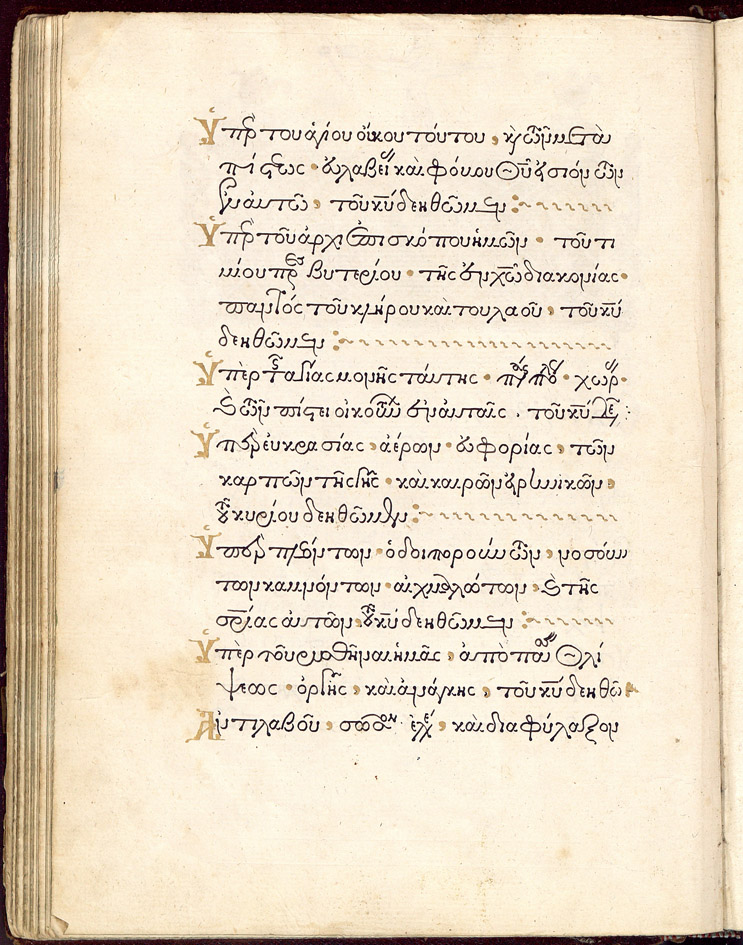 Ὑπὲρ τοῦ ἁγίου οἴκου τούτου, καὶ τῶν μετὰ
πίστεως, εὐλαβείας καὶ φόβου Θεοῦ εἰσιόντων
ἐν αὐτῷ, τοῦ κυ δεηθῶμεν:
Ὑπὲρ τοῦ ἀρχιεπισκόπου ἡμῶν, τοῦ τι
μίου πρεσβυτερίου, τῆς ἐν χῶ διακονίας,
παντὸς τοῦ κλήρου καὶ τοῦ λαοῦ, τοῦ κυ
δεηθῶμεν:
Ὑπὲρ τῆς ἁγίας μονῆς ταύτης, πάσης πόλεως, χώρας,
καὶ τῶν πίστει οἰκούντων ἐν αὐταῖς, τοῦ κυ δε:
Ὑπὲρ εὐκρασίας ἀέρων, εὐφορίας τῶν
καρπῶν τῆς γῆς, καὶ καιρῶν εἰρηνικῶν,
τοῦ κυρίου δεηθῶμεν:
Ὑπὲρ πλεόντων, ὁδοιπορούντων, νοσούν
των καμνόντων, αἰχμαλώτων, καὶ τῆς
σρίας αὐτῶν, τοῦ κυ δεηθῶμεν:
Ὑπὲρ τοῦ ρυσθῆναι ἡμᾶς, ἀπὸ πάσης θλί
ψεως, ὀργῆς, καὶ ἀνάγκης, τοῦ κυ δεηθῶ
Ἀντιλαβοῦ, σῶσον, ἐλέησον, καὶ διαφύλαξον